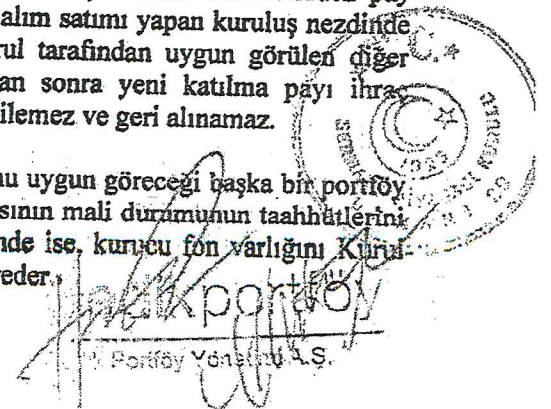 pay
alım satımı yapan kuruluş nezdinde
rul tarafından uygun görülen diğer
an sonra yeni katılma payı ihraç
ilemez ve geri alınamaz.
nu uygun göreceği başka bir portföy
sının mali durumunun taahhütlerini
nde ise, kurucu fon varlığını Kurul
eder.
portföy
Portföy Yönetimi A.Ş.